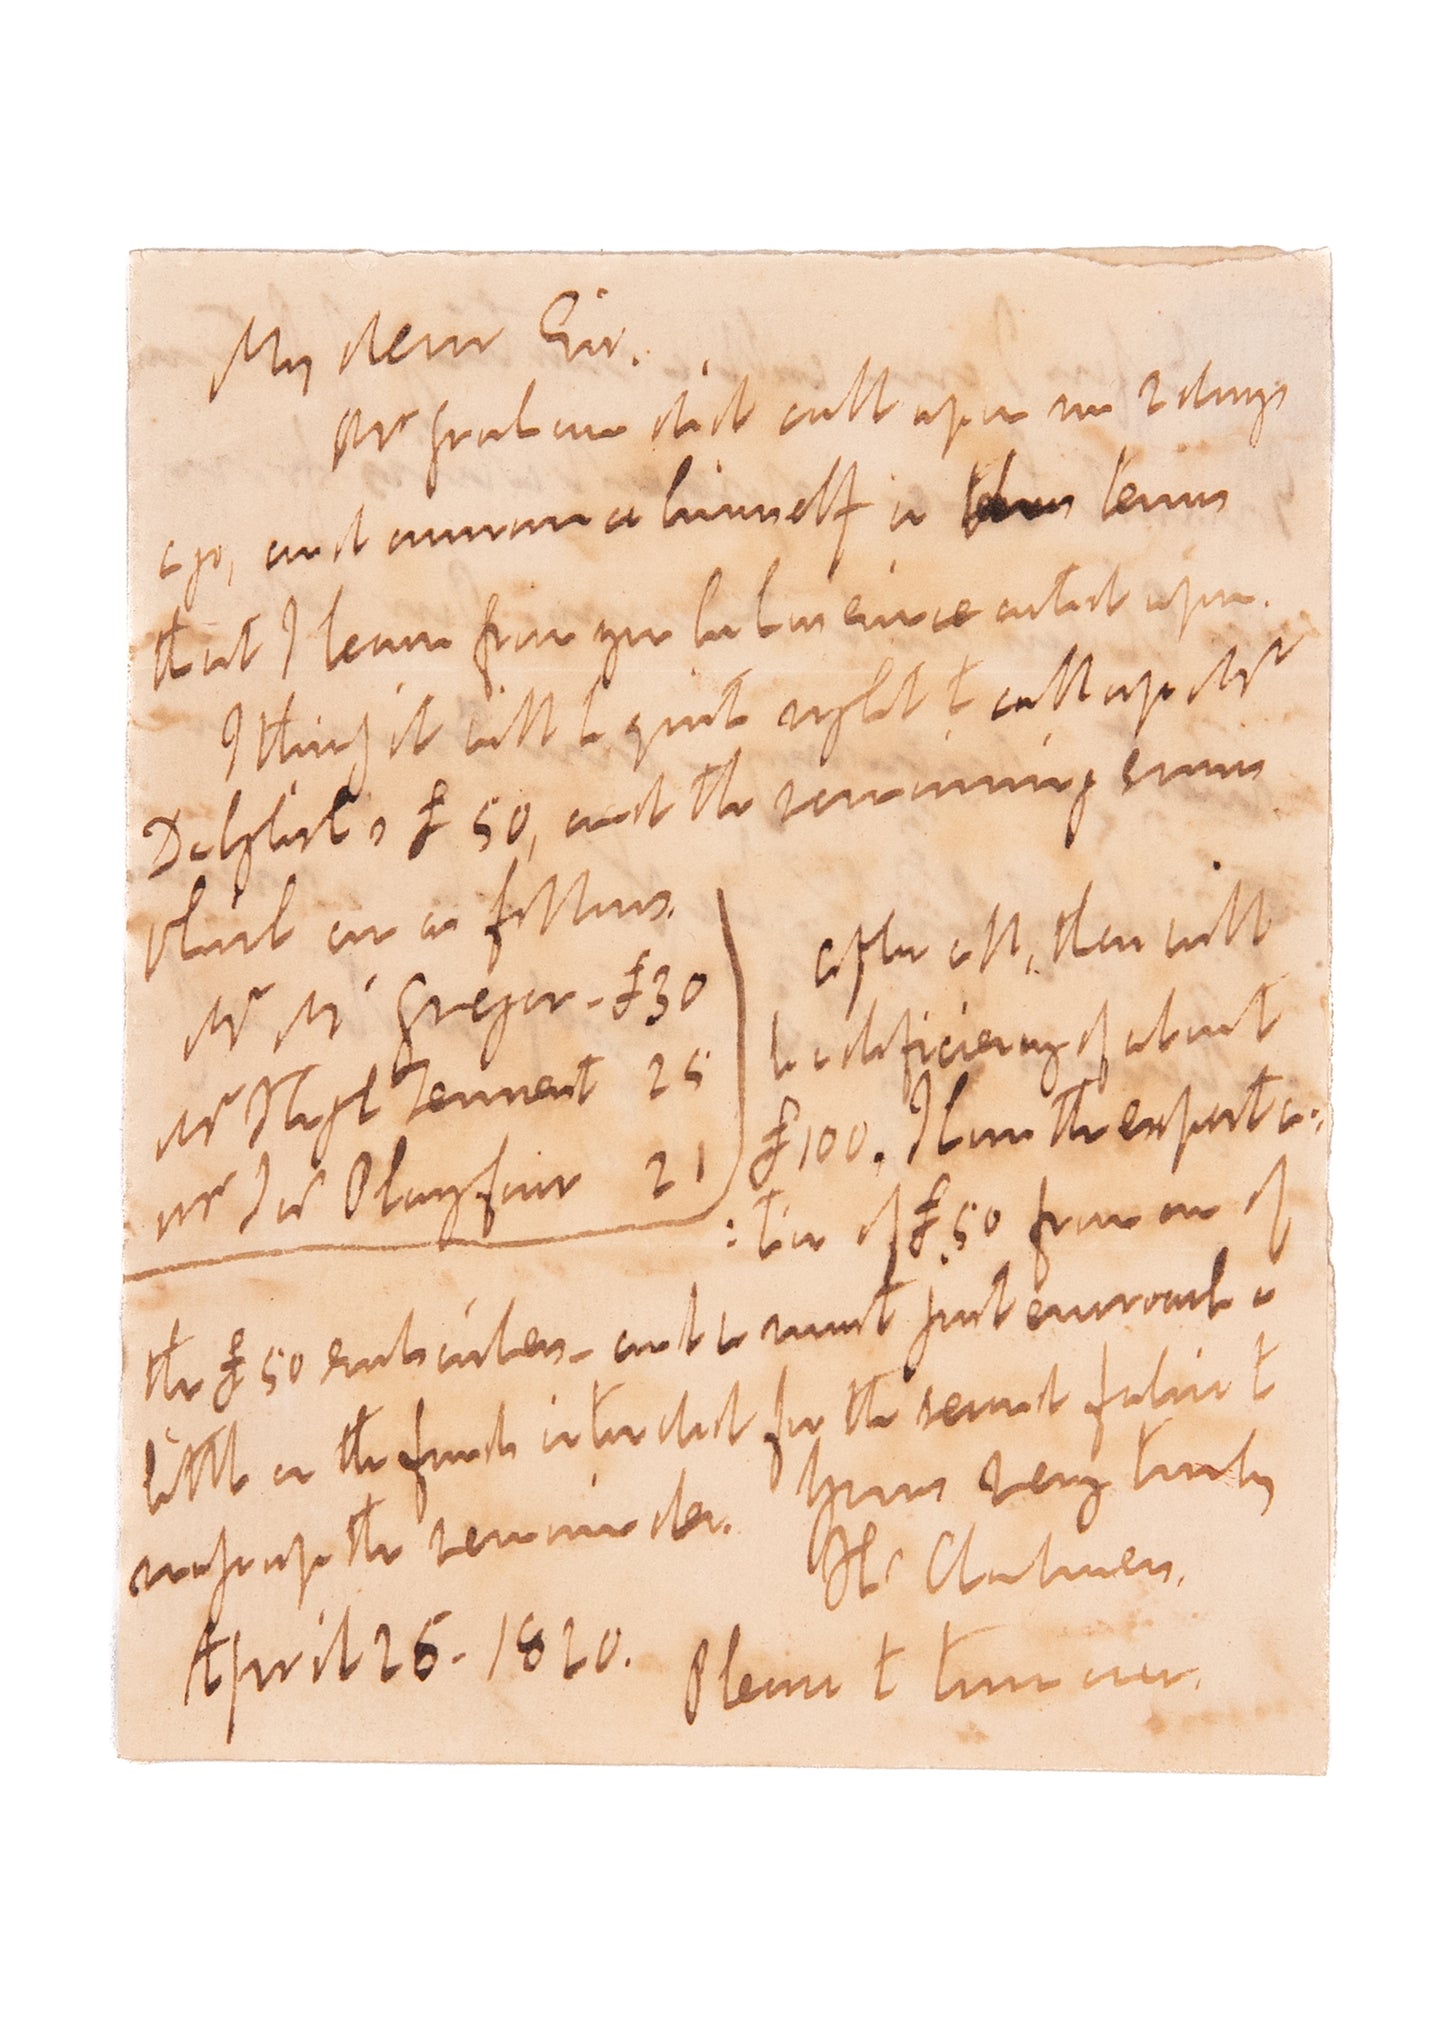 My dear Sir.
Mr Graham did call upon me 2 days
ago, and announce himself in terms
that I learn from you he has since acted upon.
I think it will be quite right to call up Mr
Dalglish's £50, and the remaining sums
which are as follows.
Mr Mc Gregor - £30
Mr Hugh Tennent 25
Mr Jas Playfair 21
after all, there will
be a deficiency of about
£100. I have the expecta-
:tion of £50 from one of
the £50 subscribers - and we must just encroach a
little on the funds intended for the second fabric to
make up the remainder. Yours very truly
Ths Chalmers.
April 26 - 1820. Please to turn over.